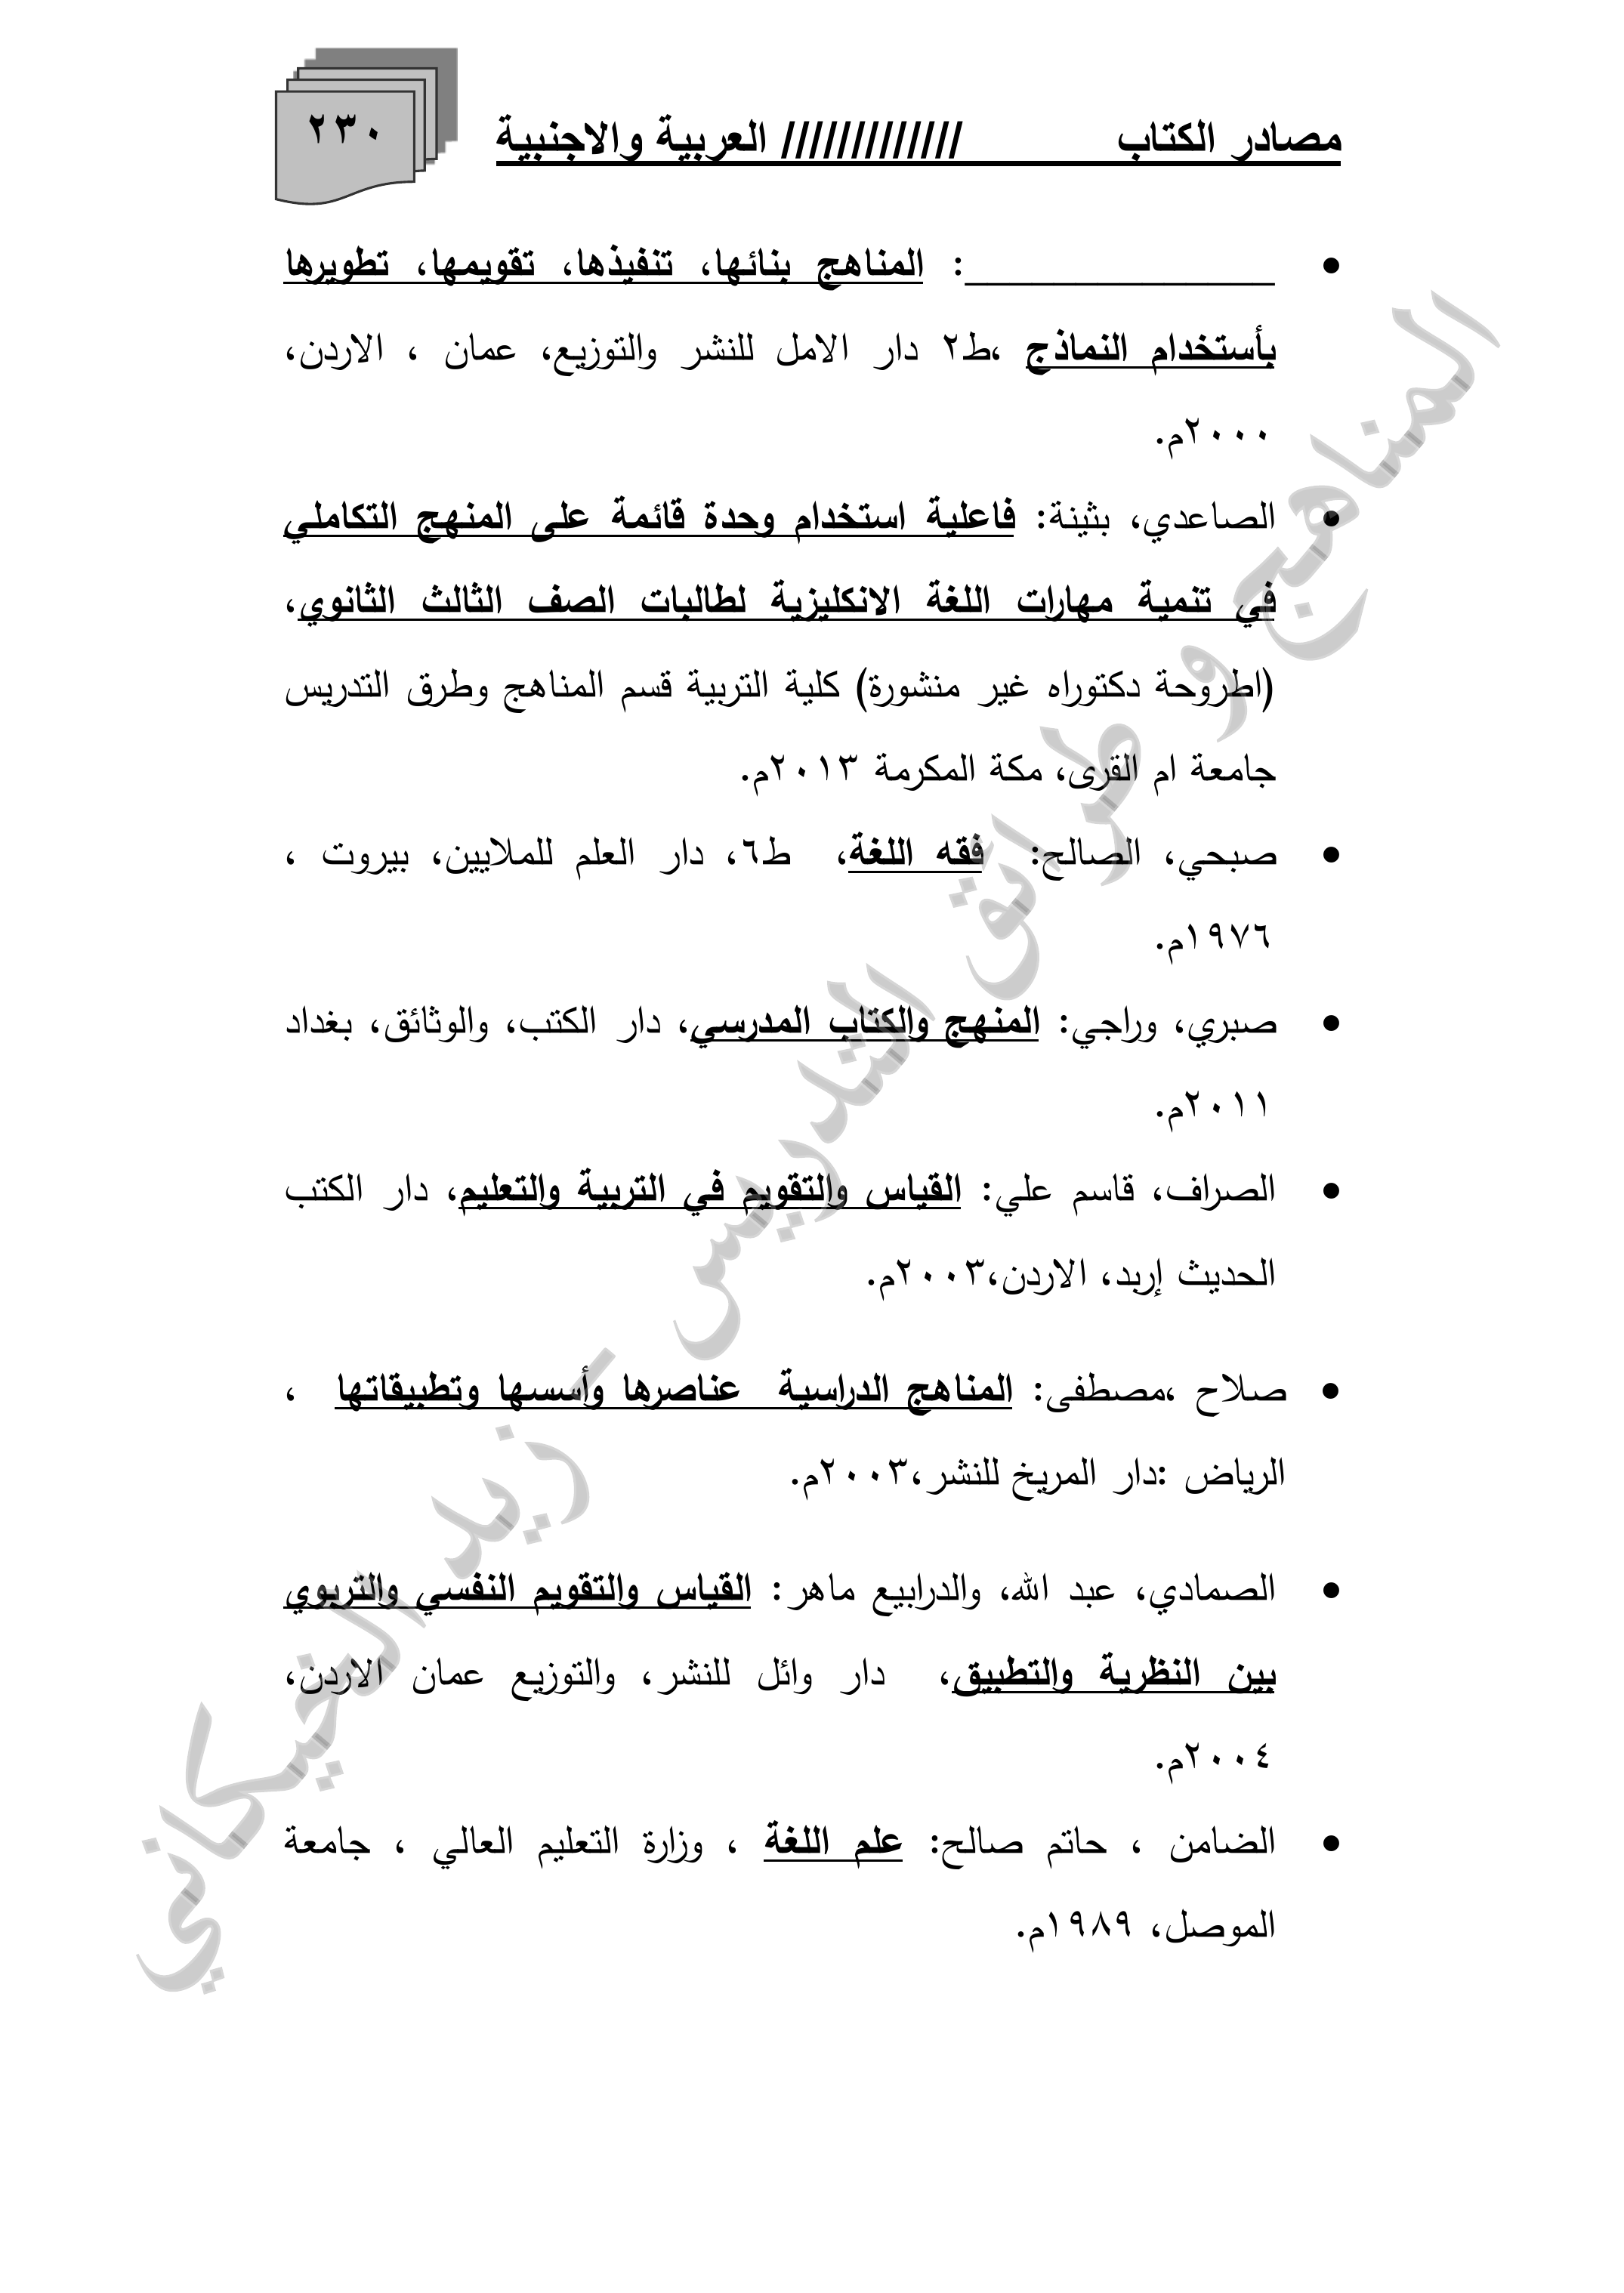 مصادر الكتاب ///////////// العربية والاجنبية
٢٣٠
• ______________: المناهج بنائها، تنفيذها، تقويمها، تطويرها
بأستخدام النماذج ،ط٢ دار الامل للنشر والتوزيع، عمان ، الاردن،
٢٠٠٠م.
• الصاعدي، بثينة: فاعلية استخدام وحدة قائمة على المنهج التكاملي
في تنمية مهارات اللغة الانكليزية لطالبات الصف الثالث الثانوي،
(اطروحة دكتوراه غير منشورة) كلية التربية قسم المناهج وطرق التدريس
جامعة ام القرى، مكة المكرمة ٢٠١٣م.
• صبحي، الصالح: فقه اللغة، ط٦، دار العلم للملايين، بيروت ،
١٩٧٦م.
• صبري، وراجي: المنهج والكتاب المدرسي، دار الكتب، والوثائق، بغداد
٢٠١١م.
• الصراف، قاسم علي: القياس والتقويم في التربية والتعليم، دار الكتب
الحديث إربد، الاردن،٢٠٠٣م.
• صلاح ،مصطفى: المناهج الدراسية عناصرها وأسسها وتطبيقاتها ،
الرياض :دار المريخ للنشر،٢٠٠٣م.
• الصمادي، عبد الله، والدرابيع ماهر: القياس والتقويم النفسي والتربوي
بين النظرية والتطبيق، دار وائل للنشر، والتوزيع عمان الاردن،
٢٠٠٤م.
• الضامن ، حاتم صالح: علم اللغة ، وزارة التعليم العالي ، جامعة
الموصل، ١٩٨٩م.
المناهج و طرائق التدريس - زيد الخيكاني